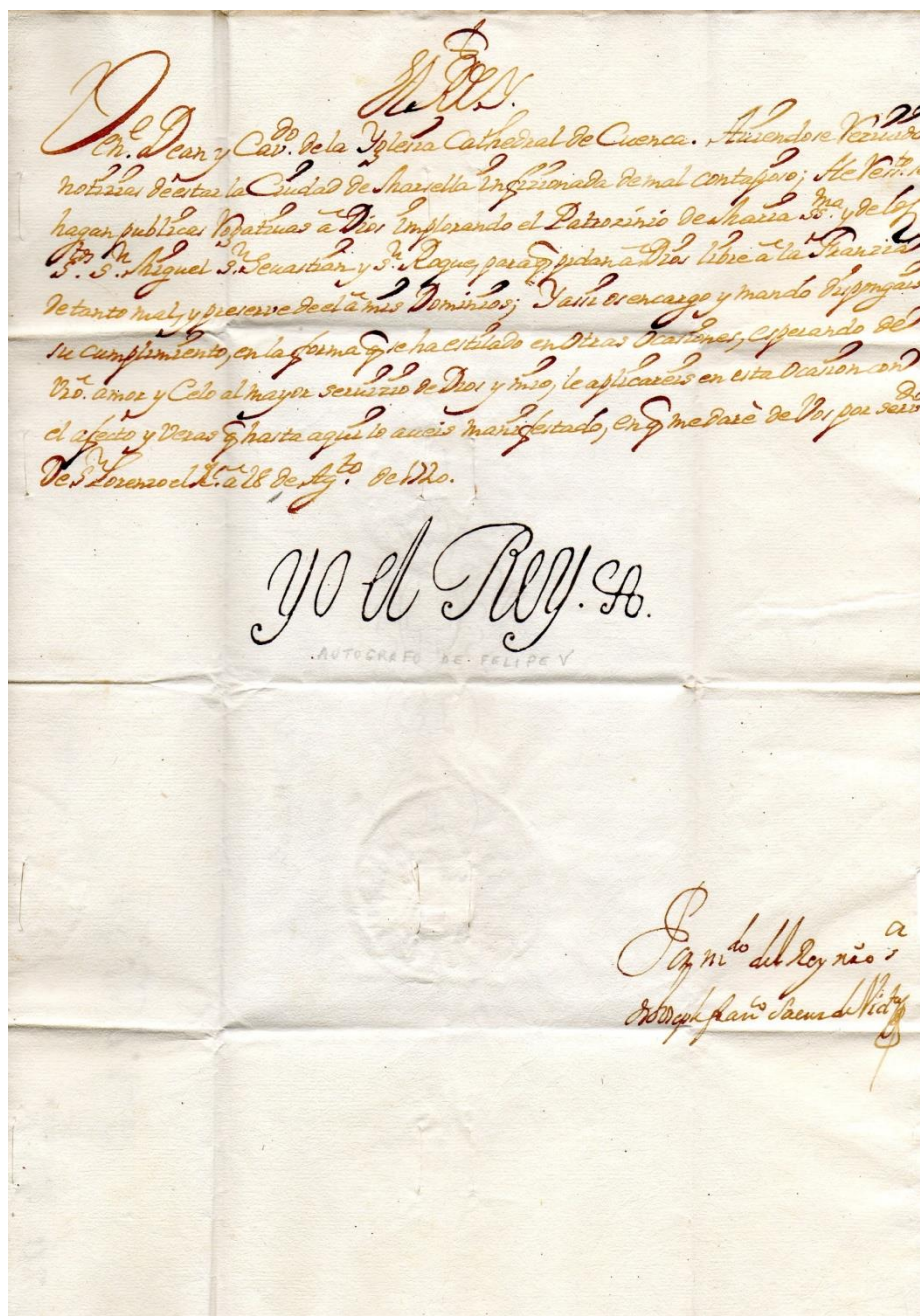 El Rey.
Ven.e Dean y Cav.do de la Yglesia Cathedral de Cuenca. Auiendose Veziuido
noticias de estar la Ciudad de Marsella infizionada de mal contagioso; He Vesu.to se
hagan publicas Rogatiuas a Dios implorando el Patrozinio de Maria S.ma y de los
S.tos S.n Miguel S.n Sevastian y S.n Roque, para q pidan a Dios libre a la Francia
de tanto mal, y preserve de el a mis Dominios; Y assi os encargo y mando dispongais
su cumplimiento, en la forma q se ha estilado en otras Ocasiones, esperando de
vro. amor y Celo al mayor seruizio de Dios y mio, le aplicareis en esta Ocasion con
el afecto y Veras q hasta aqui lo aueis manifestado, en q me daré de Vos por seru.do
De S.n Lorenzo el R.l a 28 de Ag.to de 1720.
yo el Rey.
AUTOGRAFO DE FELIPE V
Por m.do del Rey nro s.r
Joseph Fran.co Saenz de Vict.a